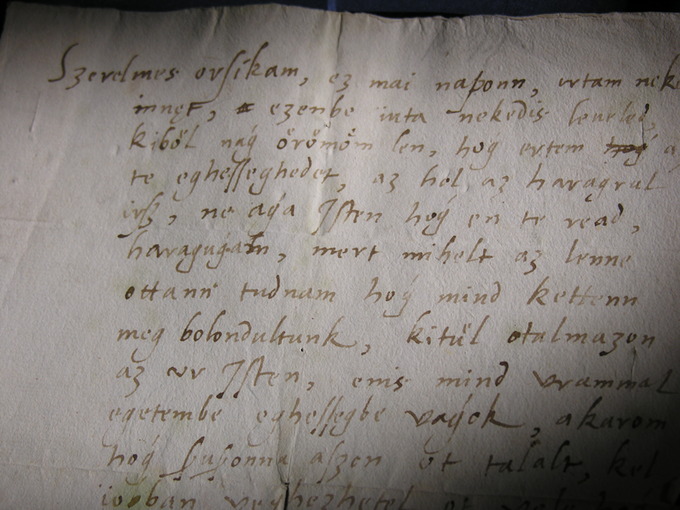 Szerelmes orsikam, ez mai naponn, irtam neke
innęt, ezenbe iuta nekedis leueled,
kiböl náǵ örömöm len, hoǵ ertem a
te eghesseghedet, az hol az haragrul
irsz, ne aǵa Isten hoǵ en te ręad,
haraguǵam, mert mihelt az lenne
ottann tudnam hoǵ mind kettenn
meg bolondultunk, kitül otalmazon
az vr Isten, enis mind vrammal
egetembe eghessęgbe vaǵok, akarom
hoǵ aszon öt talalt, kel
ioban